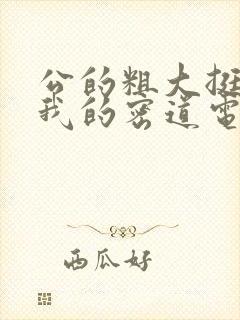 公的粗大挺
我的密道電
西瓜好